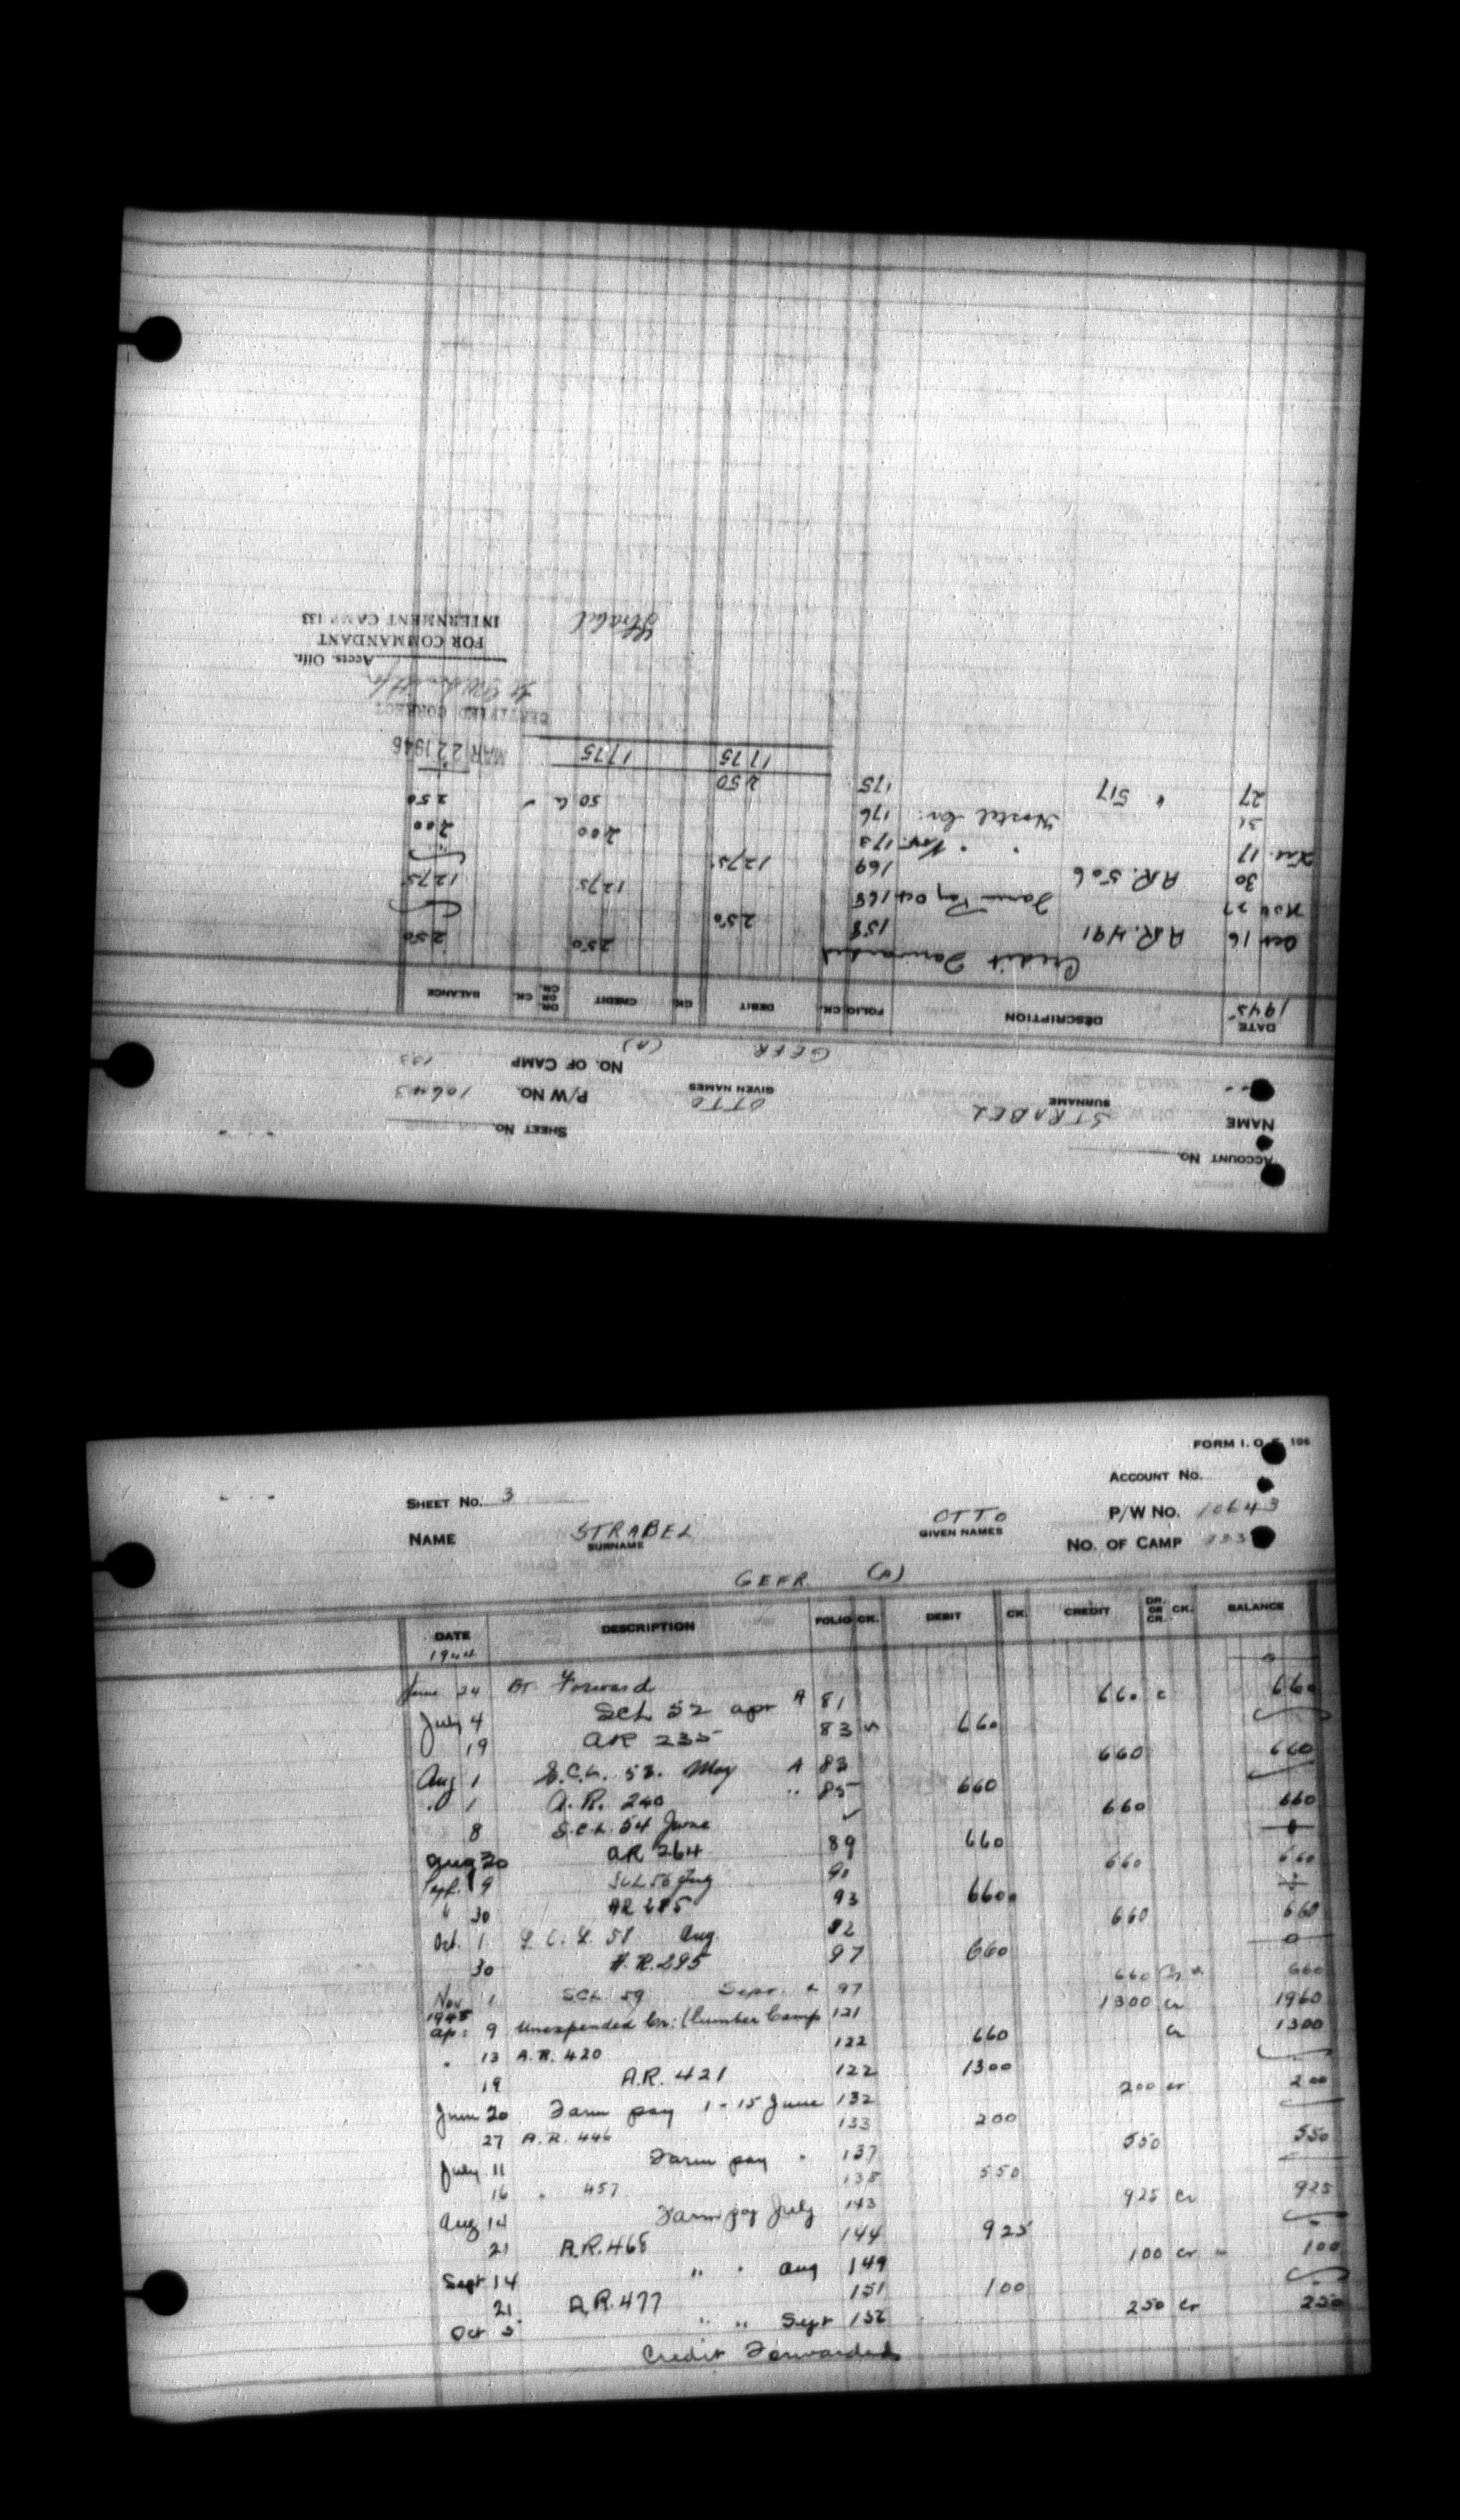 ACCOUNT No.
SHEET No.
NAME STRABEL OTTO P/W No. 10643
SURNAME GIVEN NAMES
NO. OF CAMP 133
GEFR (A)
DATE DESCRIPTION FOLIO CK. DEBIT CK. CREDIT DR. OR CR. CK. BALANCE
1945
Credit Forwarded 250 250
Oct 16 A.R. 491 158 250
Nov 27 Farm Pay Oct 168 1275 1275
30 A.R. 506 169 1275
17 " " Nov. 173 200 200
31 Hostel Cr. 176 50 250
27 " 517 175 250
1775 1775
MAR 22 1946
CERTIFIED CORRECT
Accts. Offr.
FOR COMMANDANT
INTERNMENT CAMP 133
Strabel
FORM I. O. 106
ACCOUNT No.
SHEET No. 3
P/W No. 10643
NAME STRABEL OTTO
SURNAME GIVEN NAMES
No. OF CAMP 133
GEFR. (A)
DATE DESCRIPTION FOLIO CK. DEBIT CK. CREDIT DR. OR CR. CK. BALANCE
1944
June 24 Br. Forward
July 4 SCL 52 apr A 81 660 c 660
19 AR 235 83 660
Aug 1 S.C.L. 53. May A 83 660 660
" 1 A.R. 240 " 85 660
8 S.C.L. 54 June 660 660
Aug 30 AR 264 89 660
Sept. 19 SCL 56 July 90 660 660
" 30 AR 285 93 660
Oct. 1 S.C.L. 58 Aug. 92 660 660
30 A.R. 295 97 660
Nov 1 SCL 59 Sept. 97 660 Cr 660
1945
Apr 9 Unexpended Cr. (Lumber Camp 121 1300 cr 1960
" 13 A.R. 420 122 660 cr 1300
19 A.R. 421 122 1300
June 20 Farm pay 1-15 June 132 200 cr 200
27 A.R. 446 133 200
July 11 Farm pay " 137 550 550
16 " 457 138 550
Aug 14 Farm pay July 143 925 cr 925
21 A.R. 468 144 925
Sept 14 " " Aug 149 100 cr 100
21 A.R. 477 151 100
Oct 5 " " Sept 156 250 cr 250
Credit Forwarded